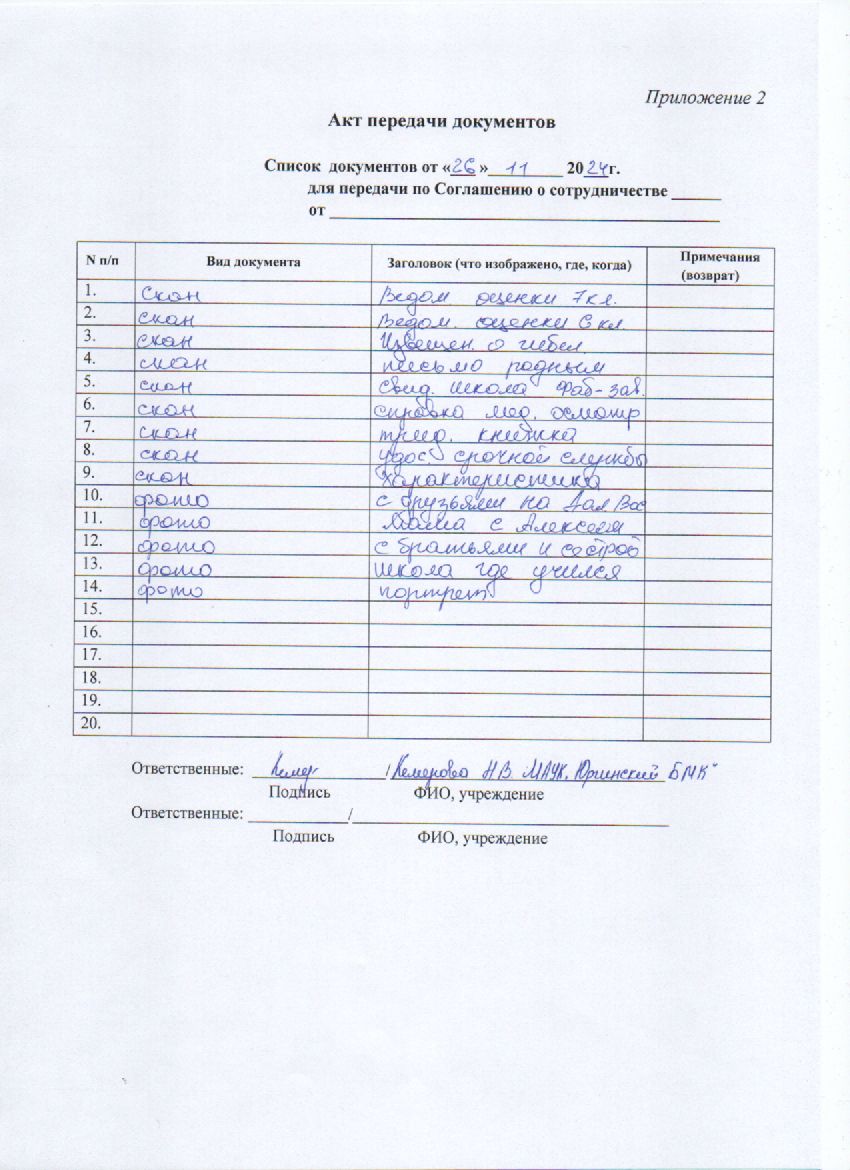 Приложение 2
Акт передачи документов
Список документов от «26» 11 2024г.
для передачи по Соглашению о сотрудничестве ______
от ______
N п/п Вид документа Заголовок (что изображено, где, когда) Примечания (возврат)
1. Скан Ведом оценки 7 кл.
2. скан Ведом. оценки 6 кл
3. скан Извещен. о гибел.
4. скан письмо родным
5. скан свид. школа Фаб-зав.
6. скан справка мед. осмотр
7. скан труд. книжка
8. скан удос. срочной службы
9. скан Характеристика
10. фото с друзьями на Дал Вос
11. фото Мама с Алексеем
12. фото с братьями и сестрой
13. фото школа где учился
14. фото портрет
15.
16.
17.
18.
19.
20.
Ответственные: / Кемерова Н.В. МАУК "Юргинский БМК"
Подпись ФИО, учреждение
Ответственные: ______/______
Подпись ФИО, учреждение